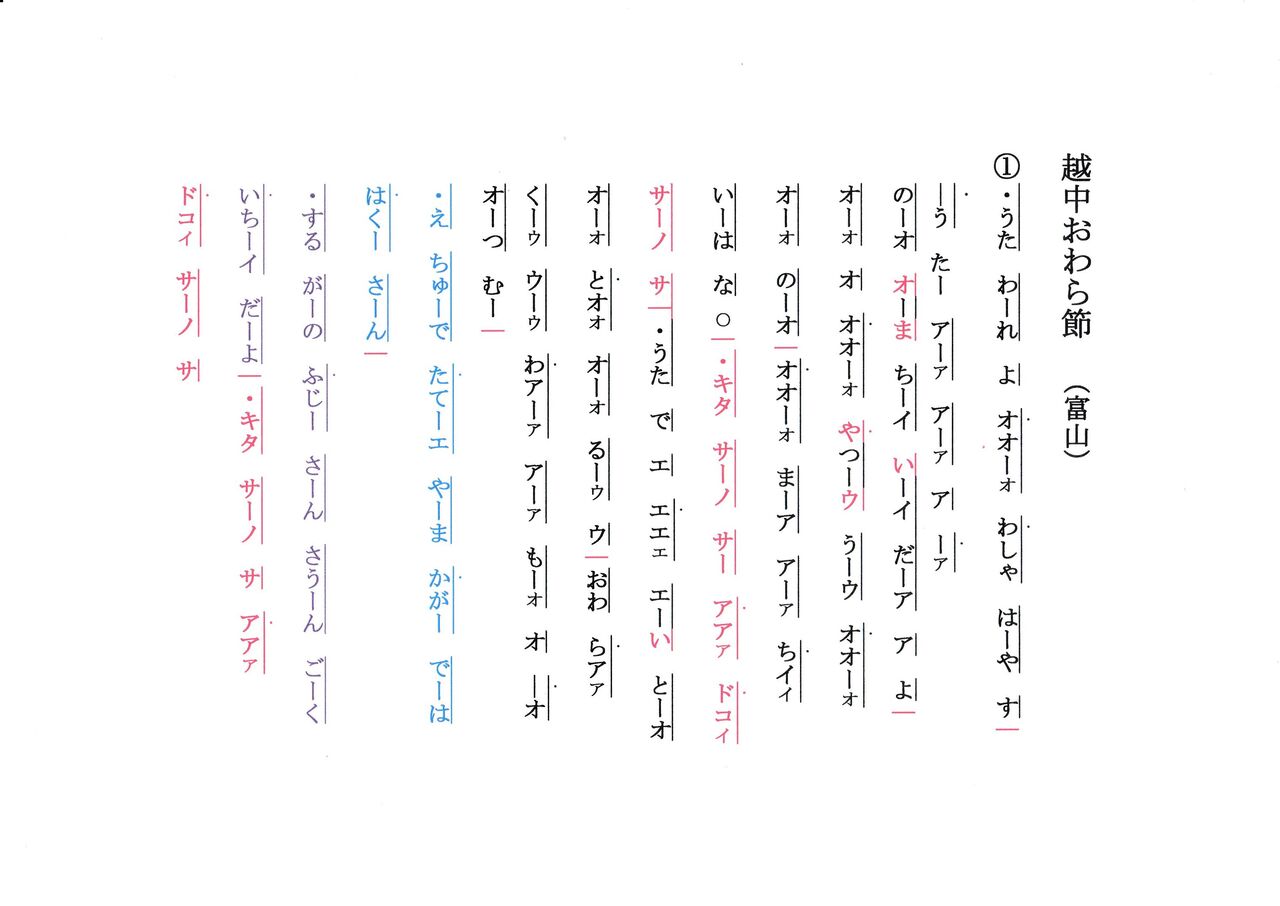 越中おわら節 （富山）
①・うた わーれ よ オオーォ わしゃ はーや す｜
ーう たー アーァ アーァ ア ーァ
のーオ オーま ちーイ いーイ だーア ア よ｜
オーォ オ オオーォ やつーウ うーウ オオーォ
オーォ のーオ｜オオーォ まーア アーァ ちイィ
いーは な ○｜・キタ サーノ サー アアァ ドコィ
サーノ サ｜・うた で エ エエェ エーい とーオ
オーォ とオォ オーォ るーゥ ウ｜おわ らアァ
くーゥ ウーゥ わアーァ アーァ もーォ オ ーオ
オーつ むー｜
・え ちゅーで たてーエ やーま かがー でーは
はくー さーん｜
・する がーの ふじー さーん さうーん ごーく
いちーイ だーよ｜・キタ サーノ サ アアァ
ドコィ サーノ サ